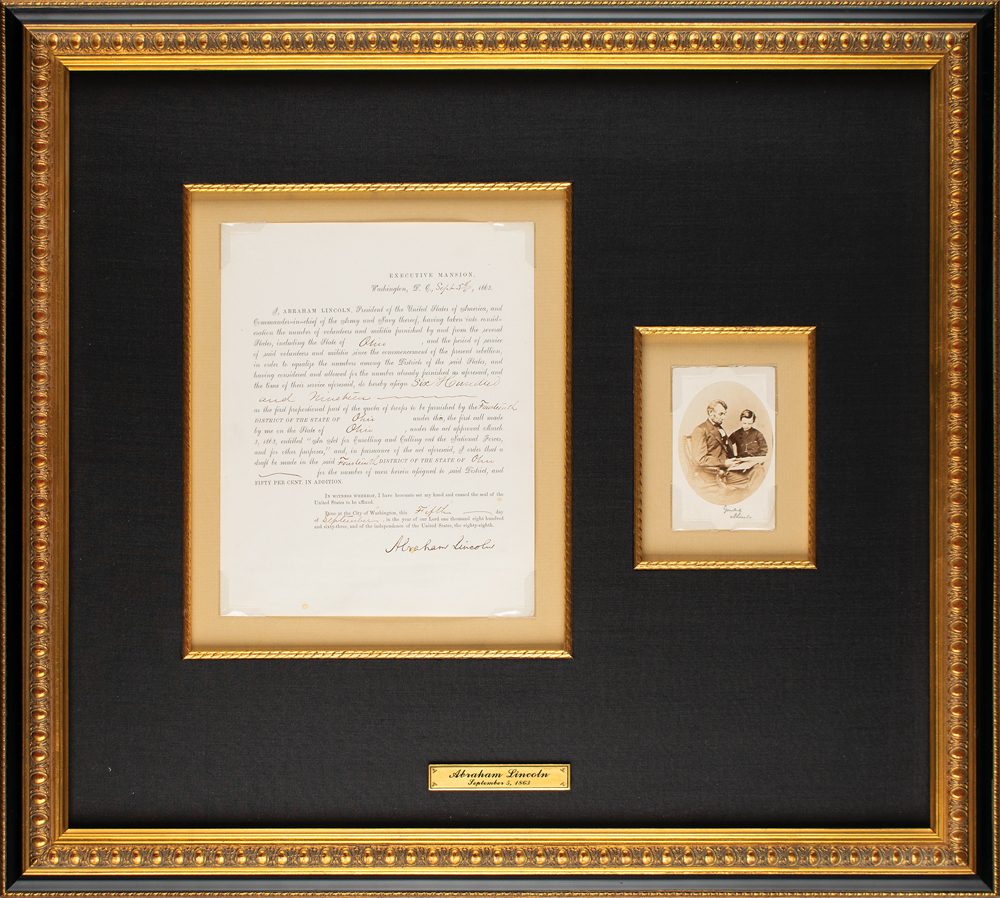 EXECUTIVE MANSION,
Washington, D. C. Sept 5th, 1863.
I, ABRAHAM LINCOLN, President of the United States of America, and
Commander-in-chief of the Army and Navy thereof, having taken into consid-
eration the number of volunteers and militia furnished by and from the several
States, including the State of Ohio, and the period of service
of said volunteers and militia since the commencement of the present rebellion,
in order to equalize the numbers among the Districts of the said States, and
having considered and allowed for the number already furnished as aforesaid, and
the time of their service aforesaid, do hereby assign Six Hundred
and Nineteen
as the first proportional part of the quota of troops to be furnished by the Fourteenth
DISTRICT OF THE STATE OF Ohio under this, the first call made
by me on the State of Ohio, under the act approved March
3, 1863, entitled "An Act for Enrolling and Calling out the National Forces,
and for other purposes," and, in pursuance of the act aforesaid, I order that a
draft be made in the said Fourteenth DISTRICT OF THE STATE OF Ohio
for the number of men herein assigned to said District, and
FIFTY PER CENT. IN ADDITION.
IN WITNESS WHEREOF, I have hereunto set my hand and caused the seal of the
United States to be affixed.
Done at the City of Washington, this Fifth day
of September, in the year of our Lord one thousand eight hundred
and sixty-three, and of the independence of the United States, the eighty-eighth.
Abraham Lincoln
Abraham Lincoln
September 5, 1863